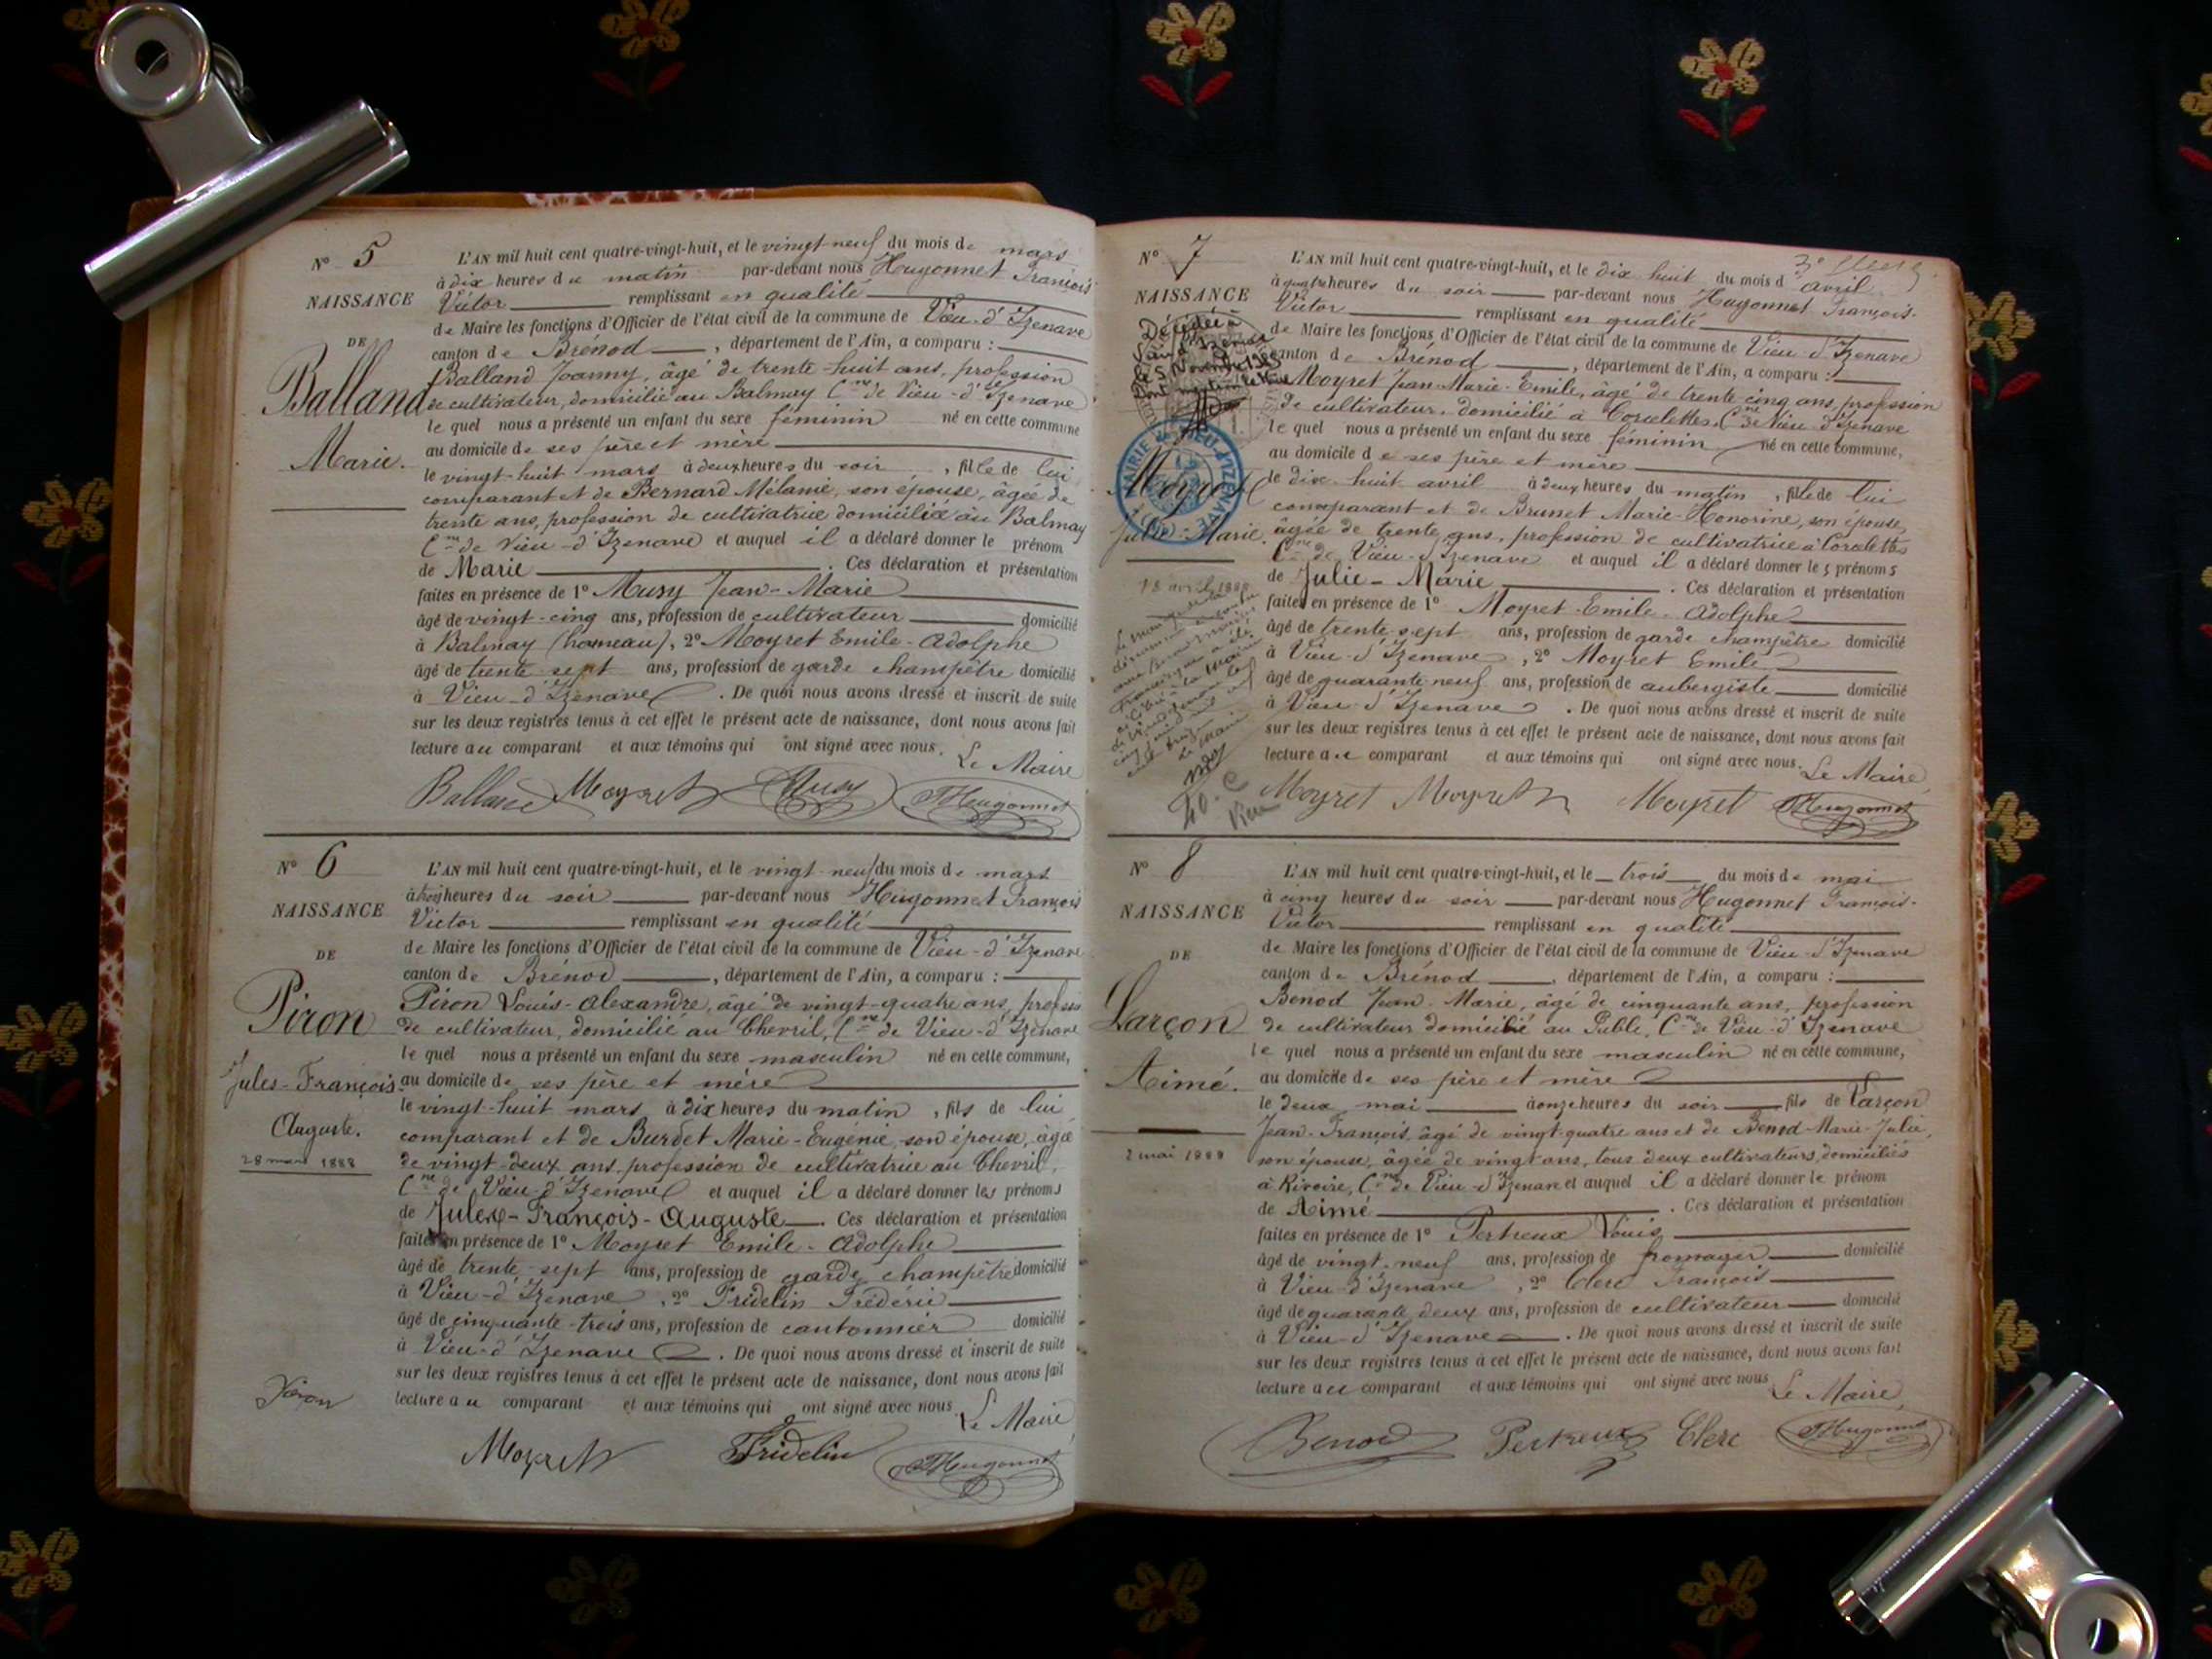 N° 5
NAISSANCE
DE
Balland
Marie.
L'AN mil huit cent quatre-vingt-huit, et le vingt-neuf du mois de mars
à dix heures du matin par-devant nous Hugonnet François
Victor remplissant en qualité
de Maire les fonctions d'Officier de l'état civil de la commune de Vieu-d'Izenave
canton de Brénod, département de l'Ain, a comparu :
Balland Joanny, âgé de trente-huit ans, profession
de cultivateur, domicilié au Balmay Cne de Vieu-d'Izenave
lequel nous a présenté un enfant du sexe féminin né en cette commune
au domicile de ses père et mère
le vingt-huit mars à deux heures du soir, fille de lui
comparant et de Bernard Mélanie, son épouse, âgée de
trente ans, profession de cultivatrice domiciliée au Balmay
Cne de Vieu-d'Izenave et auquel il a déclaré donner le prénom
de Marie. Ces déclaration et présentation
faites en présence de 1° Musy Jean-Marie
âgé de vingt-cinq ans, profession de cultivateur domicilié
à Balmay (hameau), 2° Moyret Emile-Adolphe
âgé de trente-sept ans, profession de garde champêtre domicilié
à Vieu-d'Izenave. De quoi nous avons dressé et inscrit de suite
sur les deux registres tenus à cet effet le présent acte de naissance, dont nous avons fait
lecture au comparant et aux témoins qui ont signé avec nous.
Le Maire
Balland Moyret Musy Hugonnet
N° 6
NAISSANCE
DE
Piron
Jules-François
Auguste.
28 mars 1888
Piron
L'AN mil huit cent quatre-vingt-huit, et le vingt-neuf du mois de mars
à trois heures du soir par-devant nous Hugonnet François
Victor remplissant en qualité
de Maire les fonctions d'Officier de l'état civil de la commune de Vieu-d'Izenave
canton de Brénod, département de l'Ain, a comparu :
Piron Louis-Alexandre, âgé de vingt-quatre ans, profession
de cultivateur, domicilié au Chevril, Cne de Vieu-d'Izenave
lequel nous a présenté un enfant du sexe masculin né en cette commune,
au domicile de ses père et mère
le vingt-huit mars à dix heures du matin, fils de lui
comparant et de Burdet Marie-Eugénie, son épouse, âgée
de vingt-deux ans, profession de cultivatrice au Chevril,
Cne de Vieu-d'Izenave et auquel il a déclaré donner les prénoms
de Jules-François-Auguste. Ces déclaration et présentation
faites en présence de 1° Moyret Emile-Adolphe
âgé de trente-sept ans, profession de garde champêtre domicilié
à Vieu-d'Izenave, 2° Fridelin Frédéric
âgé de cinquante-trois ans, profession de cantonnier domicilié
à Vieu-d'Izenave. De quoi nous avons dressé et inscrit de suite
sur les deux registres tenus à cet effet le présent acte de naissance, dont nous avons fait
lecture au comparant et aux témoins qui ont signé avec nous.
Le Maire,
Moyret Fridelin Hugonnet
N° 7
NAISSANCE
Décédée à
Vieu d'Izenave
le 5 Novembre 19
MAIRIE de VIEU-D'IZENAVE
Moyret
Julie-Marie.
18 avril 1888
Vieu
L'AN mil huit cent quatre-vingt-huit, et le dix huit du mois d'avril
à quatre heures du soir par-devant nous Hugonnet François-
Victor remplissant en qualité
de Maire les fonctions d'Officier de l'état civil de la commune de Vieu-d'Izenave
canton de Brénod, département de l'Ain, a comparu :
Moyret Jean-Marie-Emile, âgé de trente cinq ans, profession
de cultivateur, domicilié à Corcelettes, Cne de Vieu-d'Izenave
lequel nous a présenté un enfant du sexe féminin né en cette commune,
au domicile de ses père et mère
le dix-huit avril à deux heures du matin, fille de lui
comparant et de Brunet Marie-Honorine, son épouse,
âgée de trente ans, profession de cultivatrice à Corcelettes
Cne de Vieu-d'Izenave et auquel il a déclaré donner les prénoms
de Julie-Marie. Ces déclaration et présentation
faites en présence de 1° Moyret Emile-Adolphe
âgé de trente-sept ans, profession de garde champêtre domicilié
à Vieu-d'Izenave, 2° Moyret Emile
âgé de quarante-neuf ans, profession de aubergiste domicilié
à Vieu-d'Izenave. De quoi nous avons dressé et inscrit de suite
sur les deux registres tenus à cet effet le présent acte de naissance, dont nous avons fait
lecture au comparant et aux témoins qui ont signé avec nous.
Le Maire,
Moyret Moyret Moyret Hugonnet
N° 8
NAISSANCE
DE
Larçon
Aimé.
2 mai 1888
L'AN mil huit cent quatre-vingt-huit, et le trois du mois de mai
à cinq heures du soir par-devant nous Hugonnet François-
Victor remplissant en qualité
de Maire les fonctions d'Officier de l'état civil de la commune de Vieu-d'Izenave
canton de Brénod, département de l'Ain, a comparu :
Benod Jean-Marie, âgé de cinquante ans, profession
de cultivateur domicilié au Puble, Cne de Vieu-d'Izenave
lequel nous a présenté un enfant du sexe masculin né en cette commune,
au domicile de ses père et mère
le deux mai à onze heures du soir fils de Larçon
Jean-François, âgé de vingt-quatre ans et de Benod Marie-Julie,
son épouse, âgée de vingt ans, tous deux cultivateurs, domiciliés
à Rivoire, Cne de Vieu-d'Izenave et auquel il a déclaré donner le prénom
de Aimé. Ces déclaration et présentation
faites en présence de 1° Pertreux Louis
âgé de vingt-neuf ans, profession de fromager domicilié
à Vieu-d'Izenave, 2° Clerc François
âgé de quarante deux ans, profession de cultivateur domicilié
à Vieu-d'Izenave. De quoi nous avons dressé et inscrit de suite
sur les deux registres tenus à cet effet le présent acte de naissance, dont nous avons fait
lecture au comparant et aux témoins qui ont signé avec nous
Le Maire,
Benod Pertreux Clerc Hugonnet